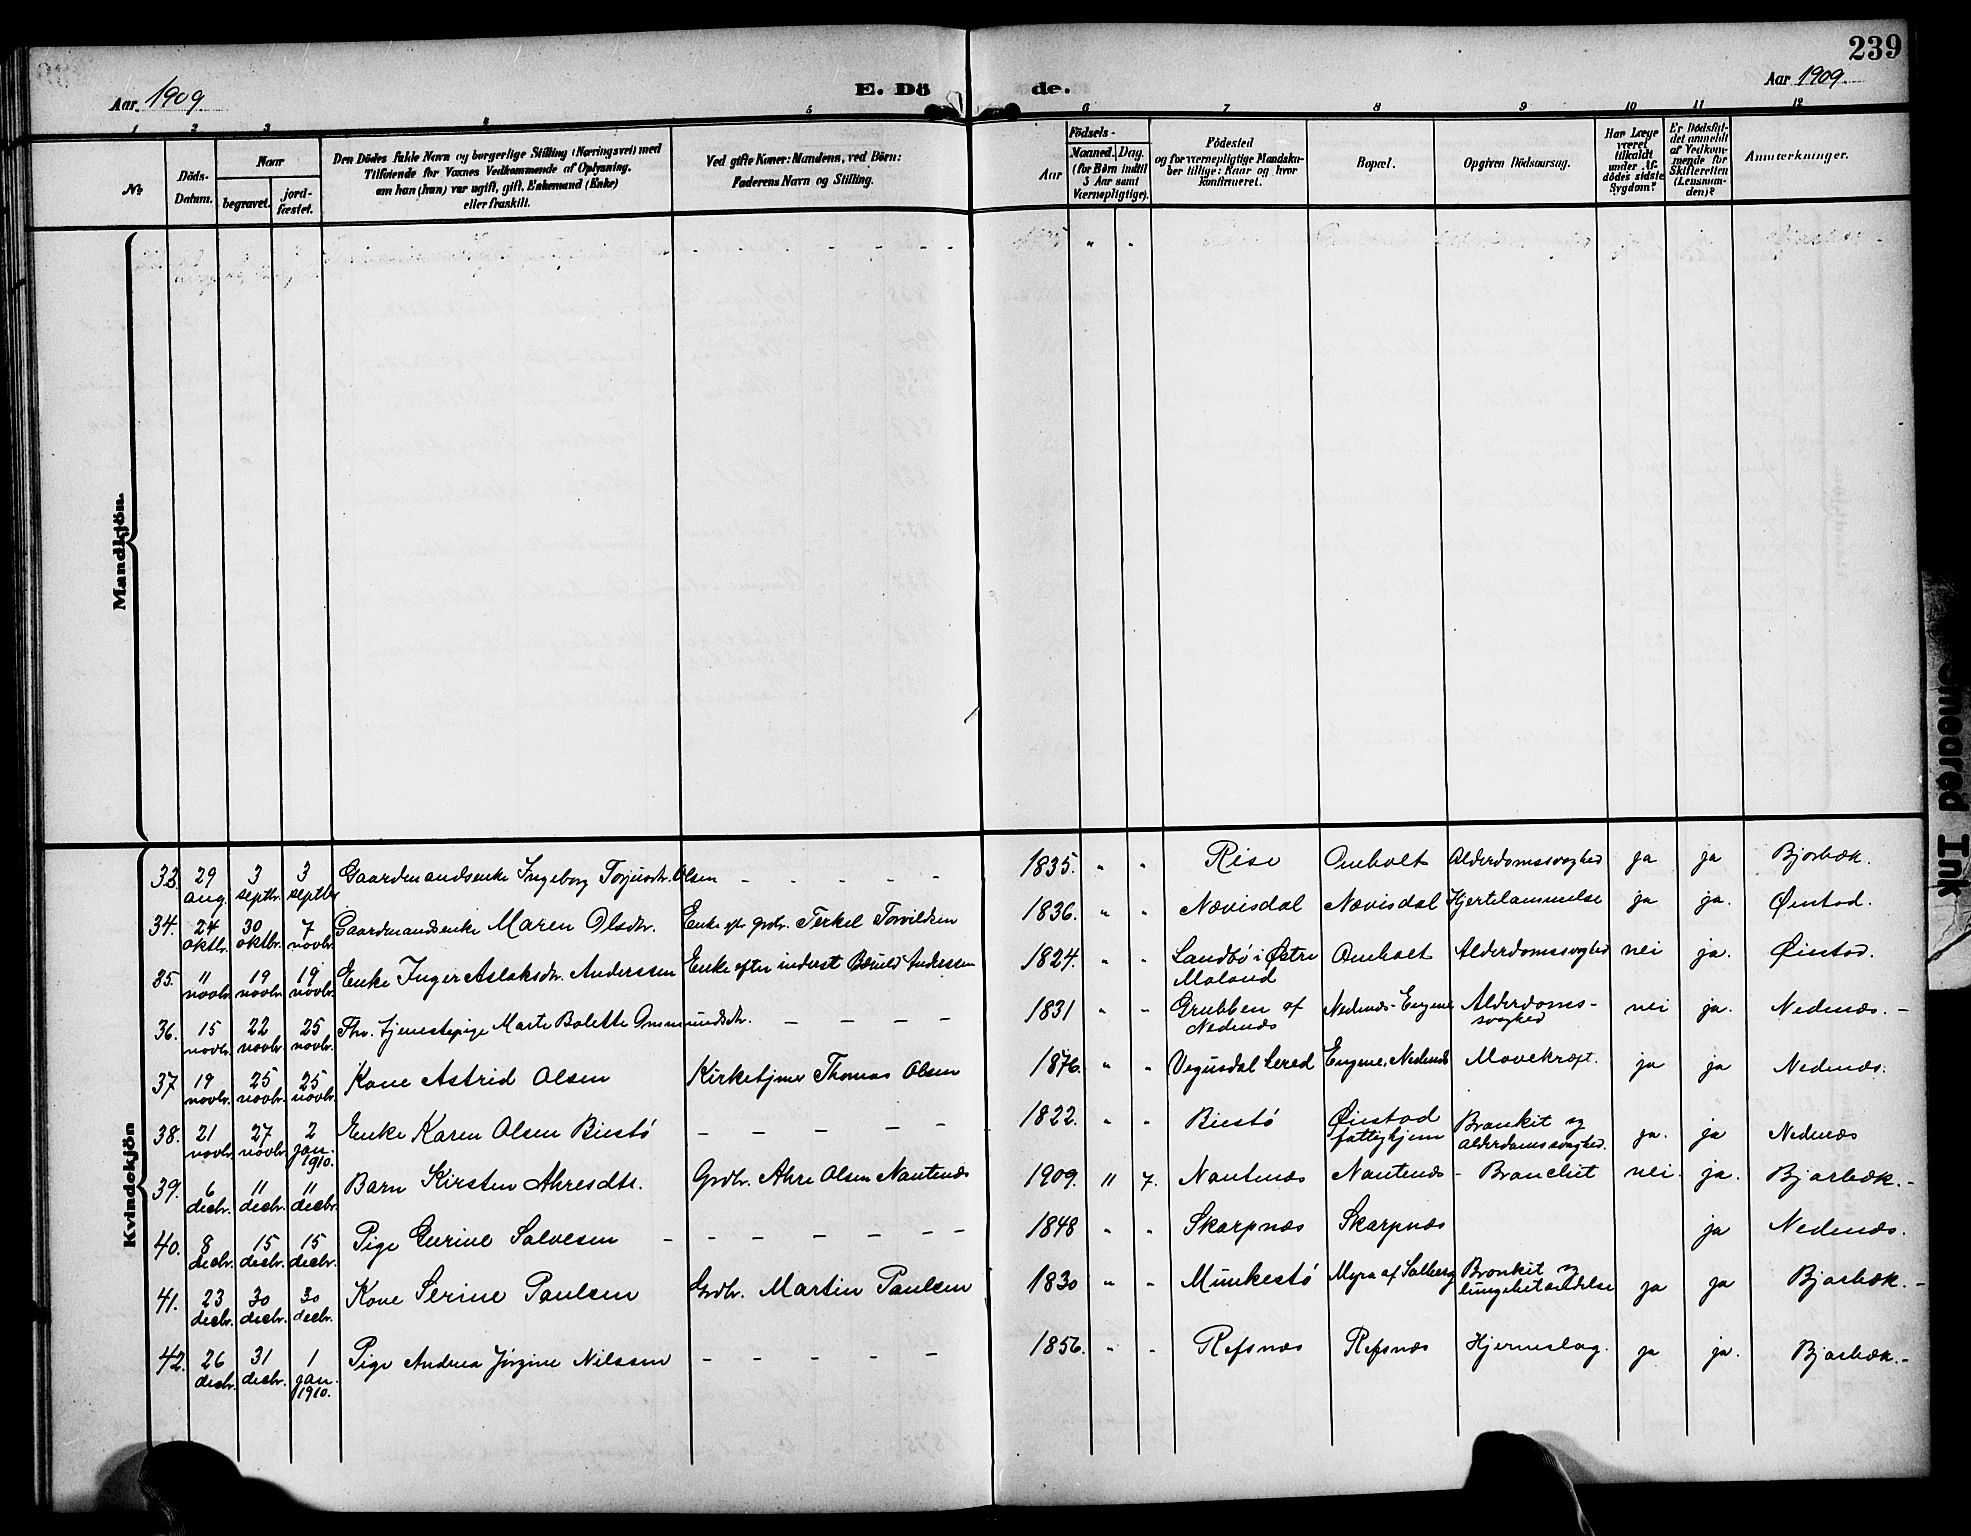 239
Aar 1909. E. Dö de. Aar 1909.
1 2 3 4 5 6 7 8 9 10 11 12
No
Döds-Datum.
Naar
begravet.
jord-fæstet.
Den Dödes fulde Navn og borgerlige Stilling (Næringsvei) med
Tilföiende for Voxnes Vedkommende af Oplysning,
om han (hun) var ugift, gift, Enkemand (Enke)
eller fraskilt.
Ved gifte Koner: Mandens, ved Börn:
Faderens Navn og Stilling.
Födsels-
Aar
Maaned. Dag.
(for Börn indtil
5 Aar samt
Værnepligtige).
Födested
og for værnepligtige Mandska-
ber tillige: Naar og hvor
konfirmeret.
Bopæl.
Opgiven Dödsaarsag.
Har Læge
været
tilkaldt
under Af-
dödes sidste
Sygdom?
Er Dödsfal-
det anmeldt
af Vedkom-
mende for
Skifteretten
(Lensman-
den)?
Anmærkninger.
Mandkjön.
Kvindekjön
33. 29 aug. 3 septbr. 3 septbr. Gaardmandsenke Ingeborg Torjusdr. Olsen - - - - - 1835. " " Rise Omholt Alderdomssvaghed ja ja Bjorbæk.
34. 24 oktbr. 30 oktbr. 7 novbr. Gaardmandsenke Maren Olsdtr. Enke eftr. grdbr. Terkel Torvildsen 1836. " " Nævisdal Nævisdal Hjertelammelse ja ja. Øiestad.
35. 11 novbr. 19 novbr. 19 novbr. Enke Inger Aslaksdr. Anderssen Enke efter inderst Andersen 1824. " " Landbö i Østre Moland Omholt Alderdomssvaghed nei ja. Øiestad.
36. 15 novbr. 22 novbr. 25 novbr. Fhv. tjenestepige Marte Bolette Ommundsdtr. - - - - 1831 " " Grubben af Nedenæs Nedenæs-Engene Alderdoms-svaghed nei ja. Nedenæs. -
37 19 novbr. 25 novbr. 25 novbr. Kone Astrid Olsen Kirketjener Thomas Olsen 1876. " " Vegusdal Engene, Nedenæs Mavekræft. ja ja Nedenæs.
38. 21 novbr. 27 novbr. 2 jan. 1910. Enke Karen Olsen Biestö - - - - - 1822. " " Biestö Øiestad fattighjem Bronkit og alderdomssvaghed. ja. ja Nedenæs
39. 6 decbr. 11 decbr. 11 decbr. Barn Kirsten Ahresdtr. Grdbr. Ahre Olsen Nautenæs 1909. 11 7. Nautenæs Nautenæs - Bronchit nei. ja. Bjorbæk. -
40. 8 decbr. 15 decbr. 15 decbr. Pige Gurine Salvesen - - - - - - 1848 " " Skarpnæs Skarpnæs ja Nedenæs.
41. 23 decbr. 30 decbr. 30 decbr. Kone Serine Paulsen Grdbr. Martin Paulsen 1830 " " Munkestö Myra af Solberg Bronkit og lungebetændelse ja ja Bjorbæk. -
42. 26 decbr. 31 decbr. 1 jan. 1910. Pige Andrea Jörgine Nilssen - - - - - 1856. " " Refsnæs Refsnæs Hjerneslag. ja ja. Bjorbæk. -
smeared Ink